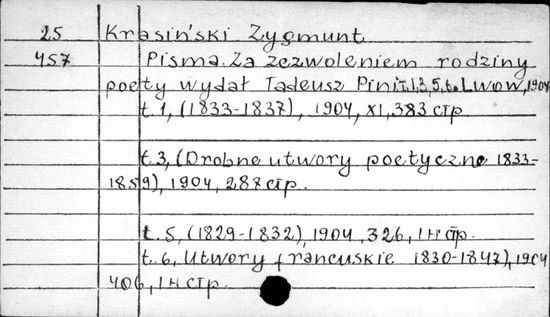 25 Krasiński Zygmunt
457 Pisma. Za zezwoleniem rodziny
poety wydał Tadeusz Pini. T. 1,3,5,6. Lwow, 1904
t. 1, (1833-1837), 1904, XI, 383 стр
t. 3, (Drobne utwory poetyczne 1833-
1859), 1904, 287 стр.
t. 5, (1829-1832), 1904, 326, 1 н стр.
t. 6, Utwory francuskie 1830-1847), 1904
406, 1 н стр.